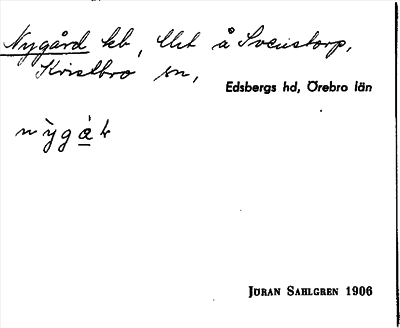 Nygård hb, Uet å Svenstorp,
Kvistbro sn,
Edsbergs hd, Örebro län
nỳgȧ̲r
JÖRAN SAHLGREN 1906